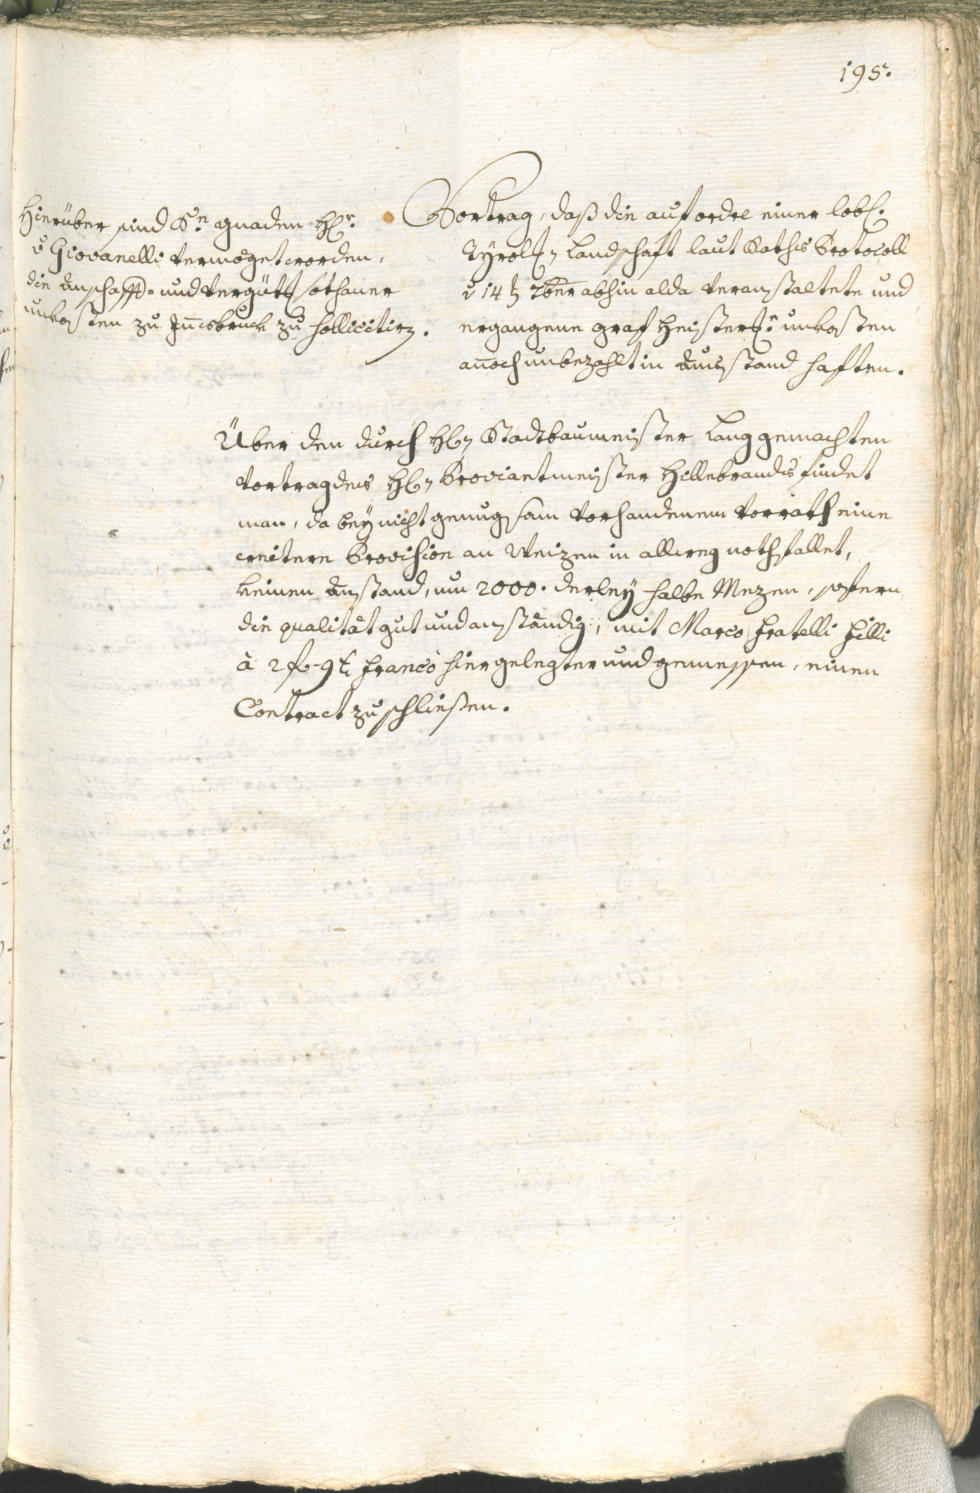 195.
Hierüber sind Sr. gnaden Hr.
v Giovanelli vermöget worden,
die anschaff= und vergüt sothaner
unkosten zu Innsbruck zu sollicitirn.
Vortrag, daß die auf ordre einer lobl.
Tyrol: Landschaft laut Raths Protocoll
v 14t 7ber abhin alda veranstaltete und
ergangene graf Heister: unkosten
annoch unbezahlt in ausstand haften.
Über den durch H: Stadtbaumeister Lang gemachten
vortrag des H: Proviantmeister Hillebrandts findet
man, da bey nicht genugsam vorhandenem vorrath eine
weitere Provision an Weizen in allweg nothfallet,
keinen anstand, um 2000. derley halbe Mezen, sofern
die qualität gut und anständig, mit Marco fratelli filli
à 2 f 9 franco hier gelegter und gemessen, einen
Contract zu schließen.